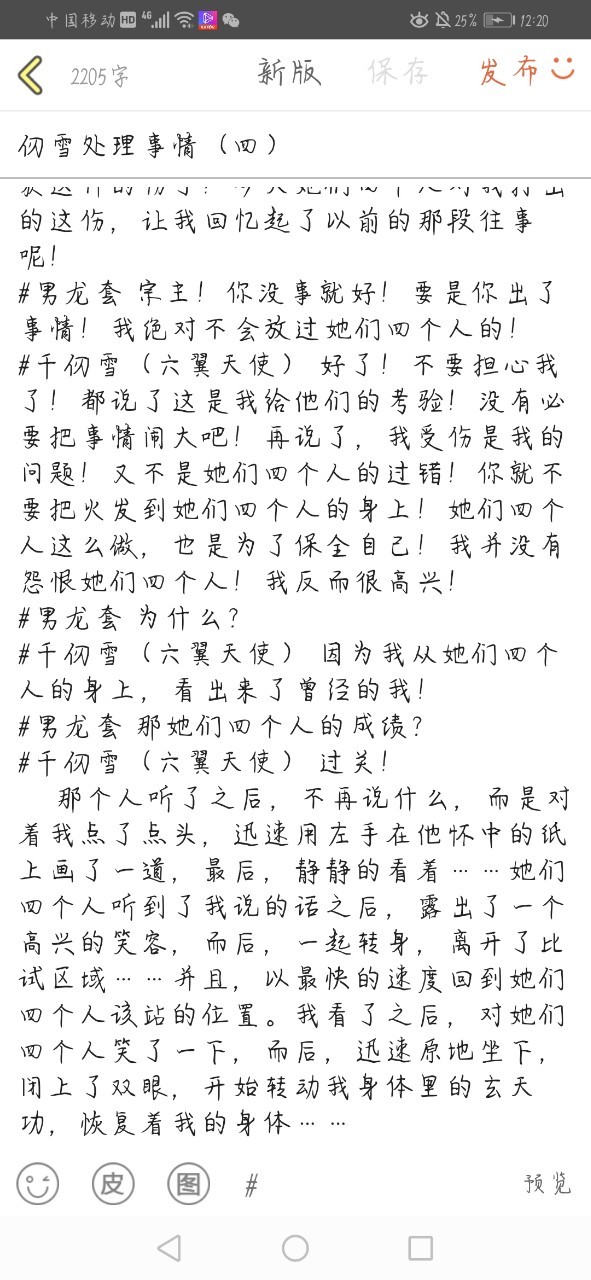 中国移动 HD 4G 25% 12:20
2205字 新版 保存 发布
仞雪处理事情（四）
的这伤，让我回忆起了以前的那段往事
呢！
#男龙套 宗主！你没事就好！要是你出了
事情！我绝对不会放过她们四个人的！
#千仞雪（六翼天使） 好了！不要担心我
了！都说了这是我给他们的考验！没有必
要把事情闹大吧！再说了，我受伤是我的
问题！又不是她们四个人的过错！你就不
要把火发到她们四个人的身上！她们四个
人这么做，也是为了保全自己！我并没有
怨恨她们四个人！我反而很高兴！
#男龙套 为什么？
#千仞雪（六翼天使） 因为我从她们四个
人的身上，看出来了曾经的我！
#男龙套 那她们四个人的成绩？
#千仞雪（六翼天使） 过关！
那个人听了之后，不再说什么，而是对
着我点了点头，迅速用左手在他怀中的纸
上画了一道，最后，静静的看着……她们
四个人听到了我说的话之后，露出了一个
高兴的笑容，而后，一起转身，离开了比
试区域……并且，以最快的速度回到她们
四个人该站的位置。我看了之后，对她们
四个人笑了一下，而后，迅速原地坐下，
闭上了双眼，开始转动我身体里的玄天
功，恢复着我的身体……
皮 图 # 预览